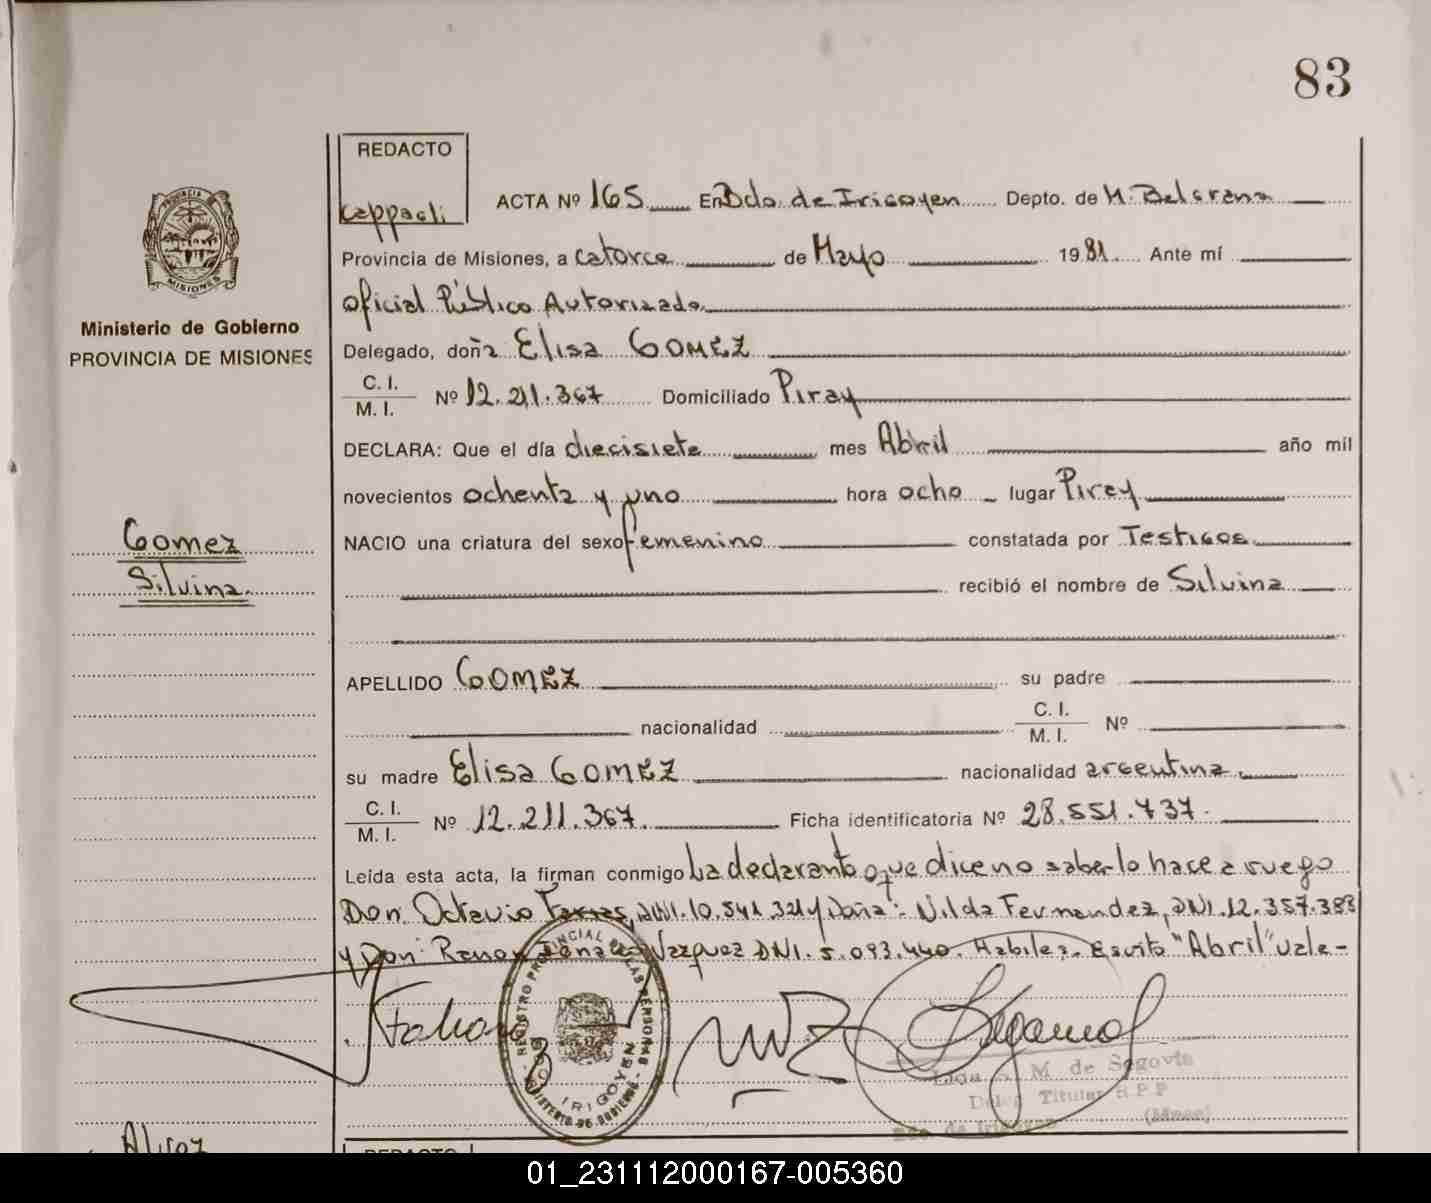 83
REDACTO
Cappagli
ACTA Nº 165 En Bdo. de Irigoyen Depto. de M. Belgrano
PROVINCIA
MISIONES
Provincia de Misiones, a catorce de Mayo 1981. Ante mí
oficial Público Autorizado
Ministerio de Gobierno
PROVINCIA DE MISIONES
Delegado, doña Elisa GOMEZ
C. I.
M. I. Nº 12.211.367 Domiciliado Piray
DECLARA: Que el día diecisiete mes Abril año mil
novecientos ochenta y uno hora ocho lugar Piray
Gomez
Silvina.
NACIO una criatura del sexo femenino constatada por Testigos
recibió el nombre de Silvina
APELLIDO GOMEZ su padre
nacionalidad C. I.
M. I. Nº
su madre Elisa GOMEZ nacionalidad argentina
C. I.
M. I. Nº 12.211.367. Ficha identificatoria Nº 28.551.737.
Leída esta acta, la firman conmigo La declarante que dice no saberlo hace a ruego
Don Octavio DNI.10.541.321 y Doña: Nilda Fernandez, DNI.12.357.383
y Don: Ramon Vazquez DNI. 5.093.440. Habiles. Escrito "Abril" vale-
REGISTRO PROVINCIAL DE LAS PERSONAS
MINISTERIO DE GOBIERNO
IRIGOYEN
M. de Segovia
Titular R.P.P
Bdo. de Irigoyen (Mnes)
REDACTO
01_231112000167-005360